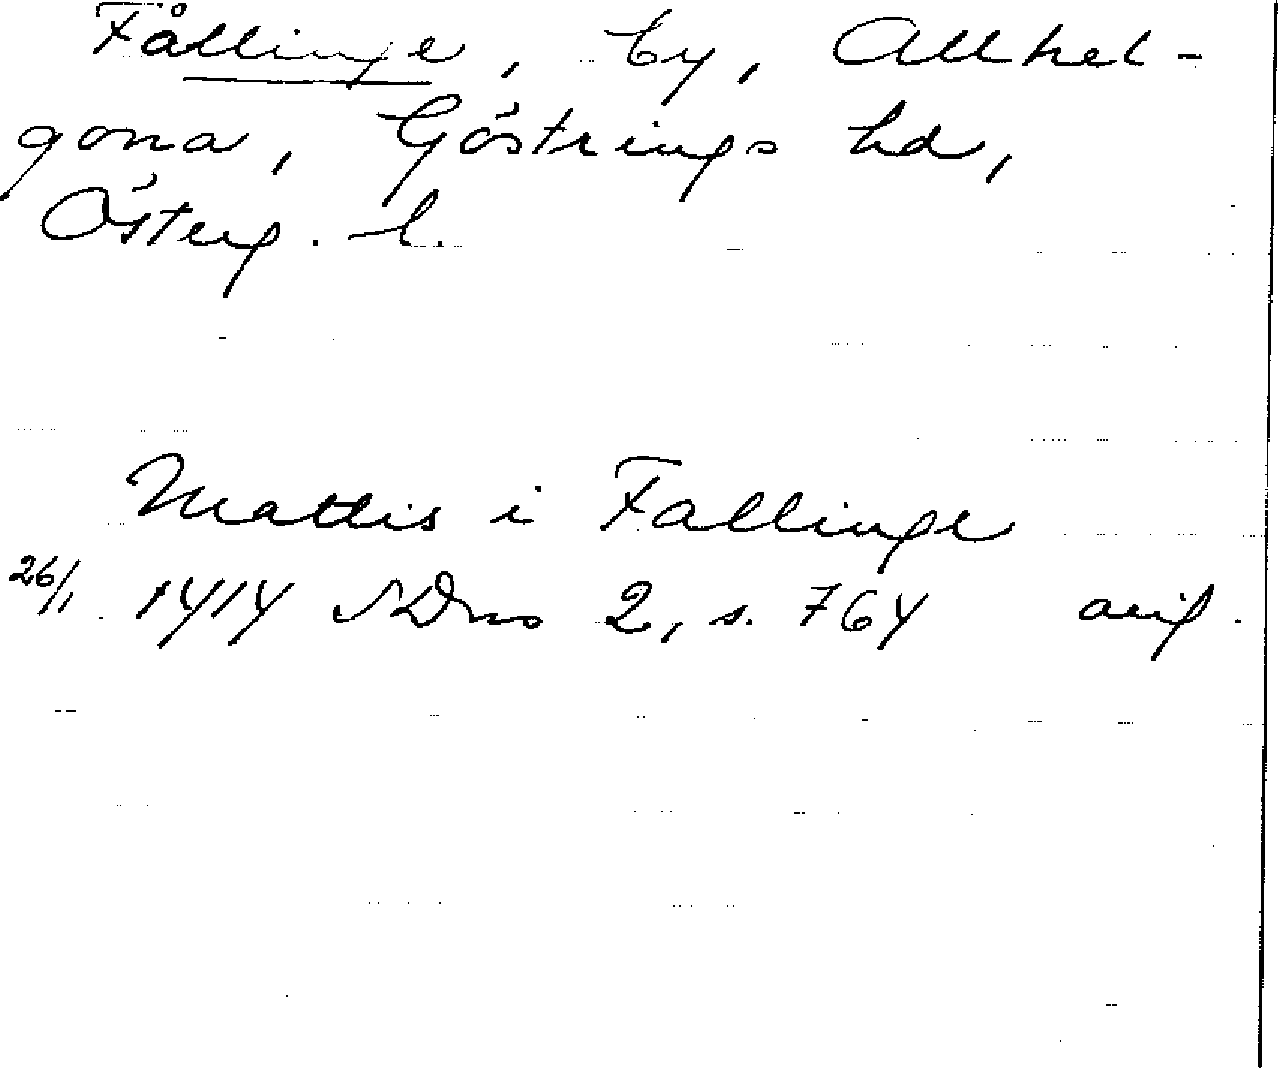 Fållinge, by, Allhel-
gona, Göstrings hd,
Österg. l.
Mattis i Fallinge
26/1 1414 SDns 2, s. 764 avif.